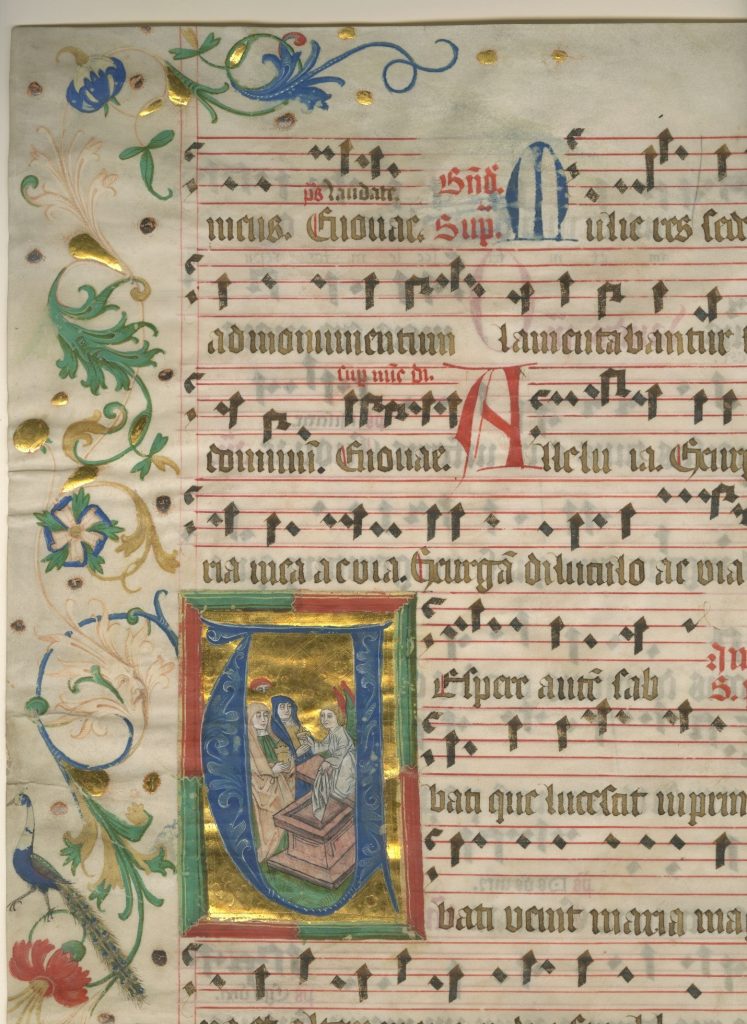 ps Laudate.
meus. Euouae. Sup. Mulie res sede
ad monumentum lamentabantur
dominū. Euouae. Allelu ia. Exurg
ria mea aevia. Exurgā diluculo aevia
Vespere autē sab
bati que lucescit in prim
bati venit maria ma